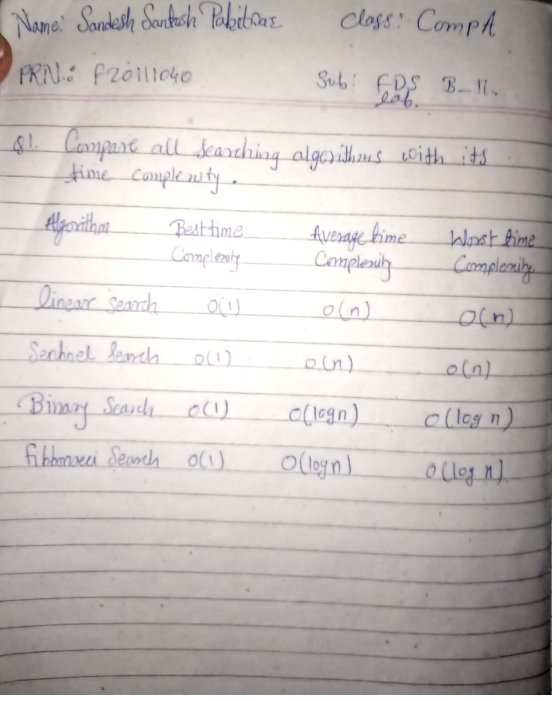 Name: Sandesh Santosh Class: CompA
PRN.: F20111040 Sub: FDS B-11.
Lab.
Q1. Compare all searching algorithms with its
time complexity.
Algorithm Best time Average time Worst time
Complexity Complexity Complexity
linear search O(1) O(n) O(n)
Sentinel Search O(1) O(n) O(n)
Binary Search O(1) O(logn) O(log n)
fibbonacci Search O(1) O(logn) O(log n)